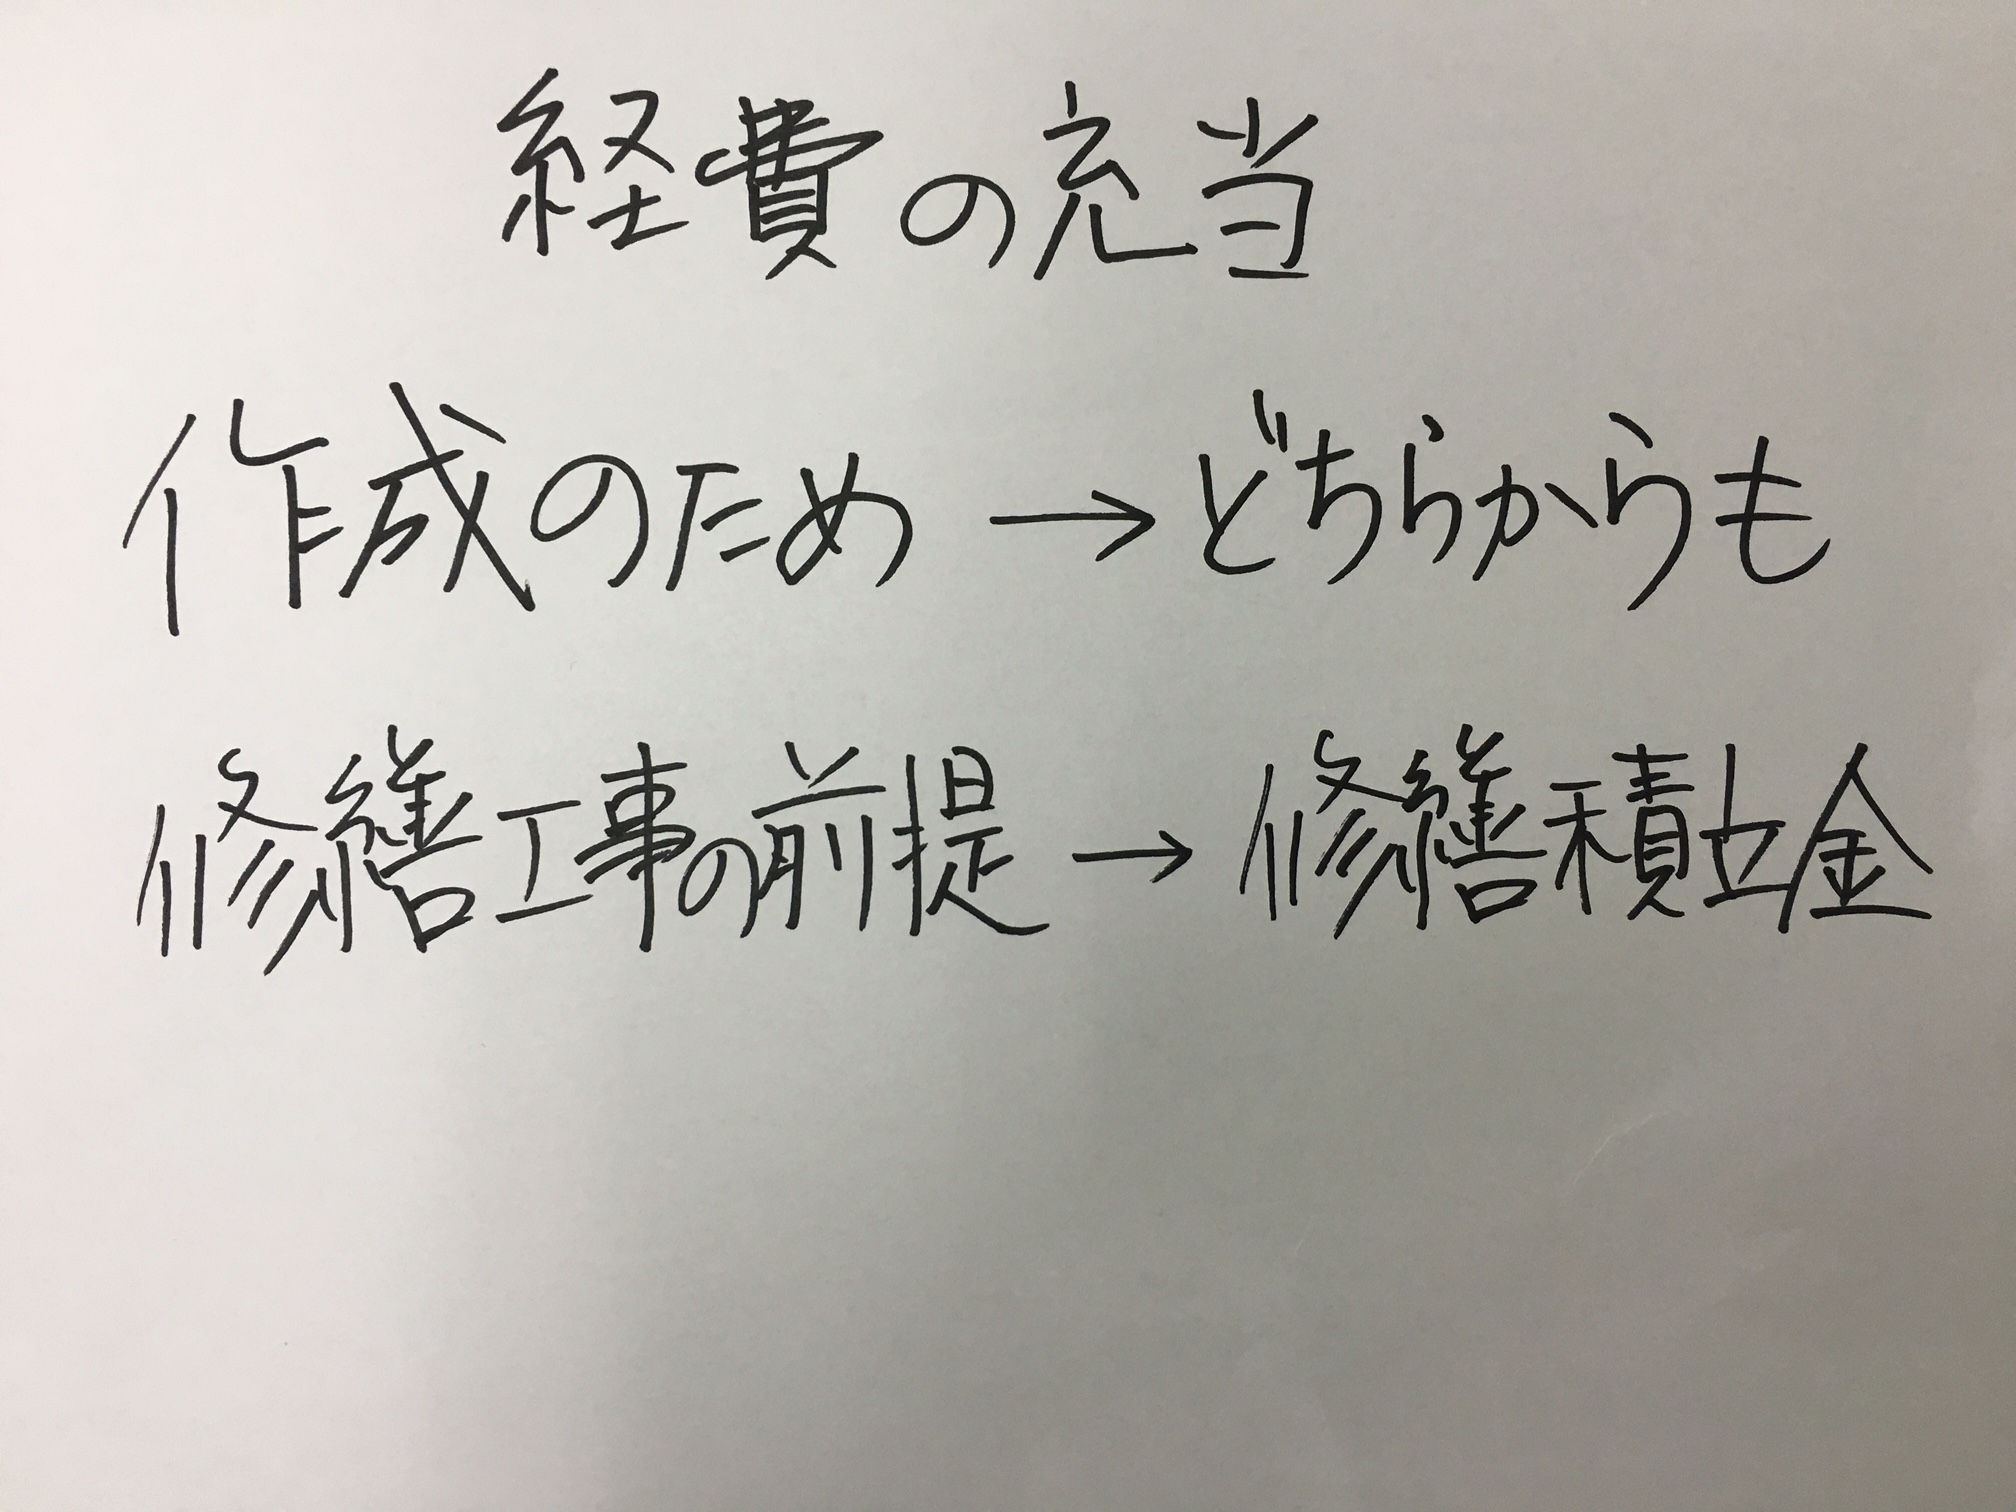 経費の充当
作成のため→どちらからも
修繕工事の前提→修繕積立金